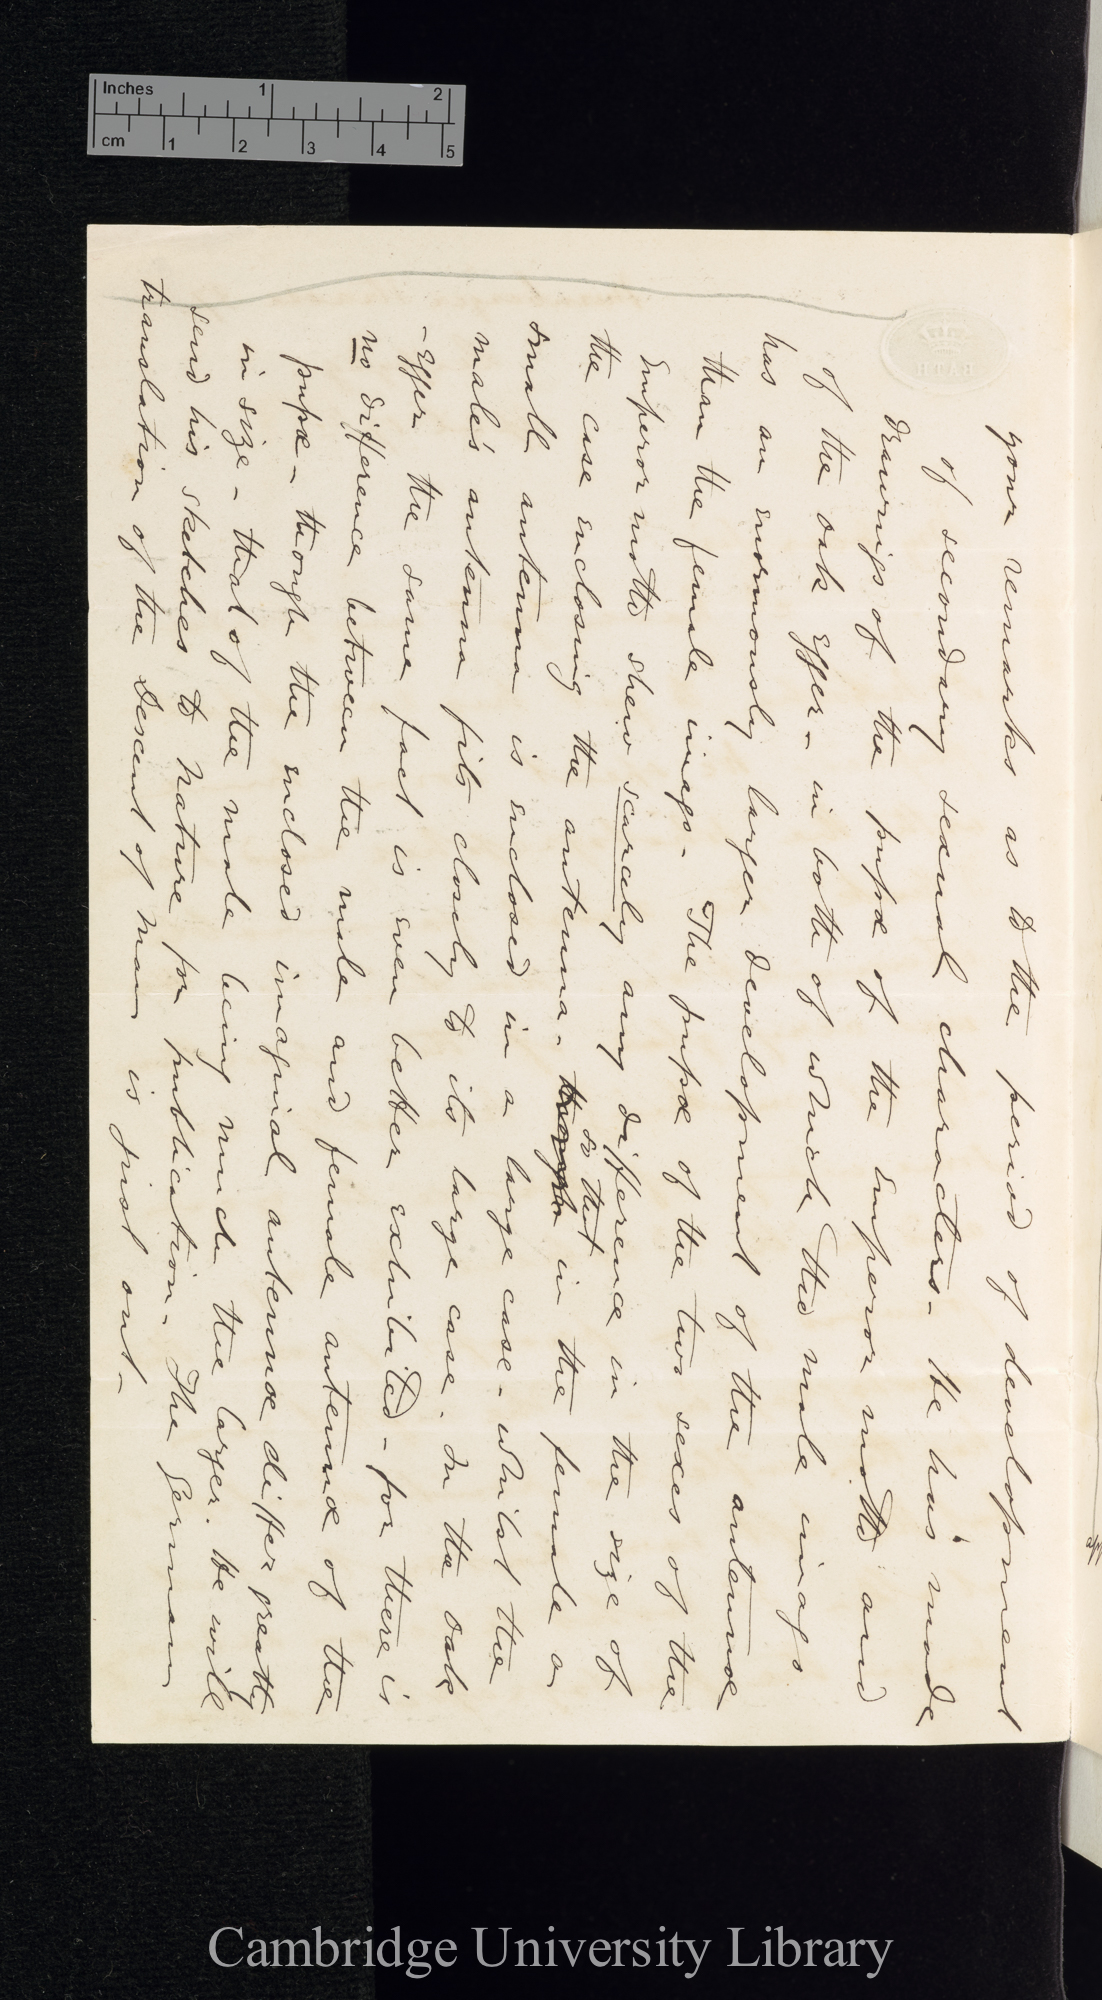 Inches 1 2
cm 1 2 3 4 5
BATH
your remarks as to the period of development
of secondary sexual characters. He has made
drawings of the pupæ of the Emperor moth and
of the oak Egger – in both of which the male imago
has an enormously larger development of the antennæ
than the female imago. The pupæ of the two sexes of the
Emperor moth shew scarcely any difference in the size of
the case enclosing the antenna – though so that in the female a
small antenna is enclosed in a large case – whilst the
male's antenna fits closely to its large case. In the oak
– Egger the same fact is even better exhibited – for there is
no difference between the male and female antennæ of the
pupæ – though the enclosed imaginal antennæ differ greatly
in size – that of the male being much the larger. He will
send his sketches to Nature for publication. The German
translation of the Descent of Man is just out –
Cambridge University Library